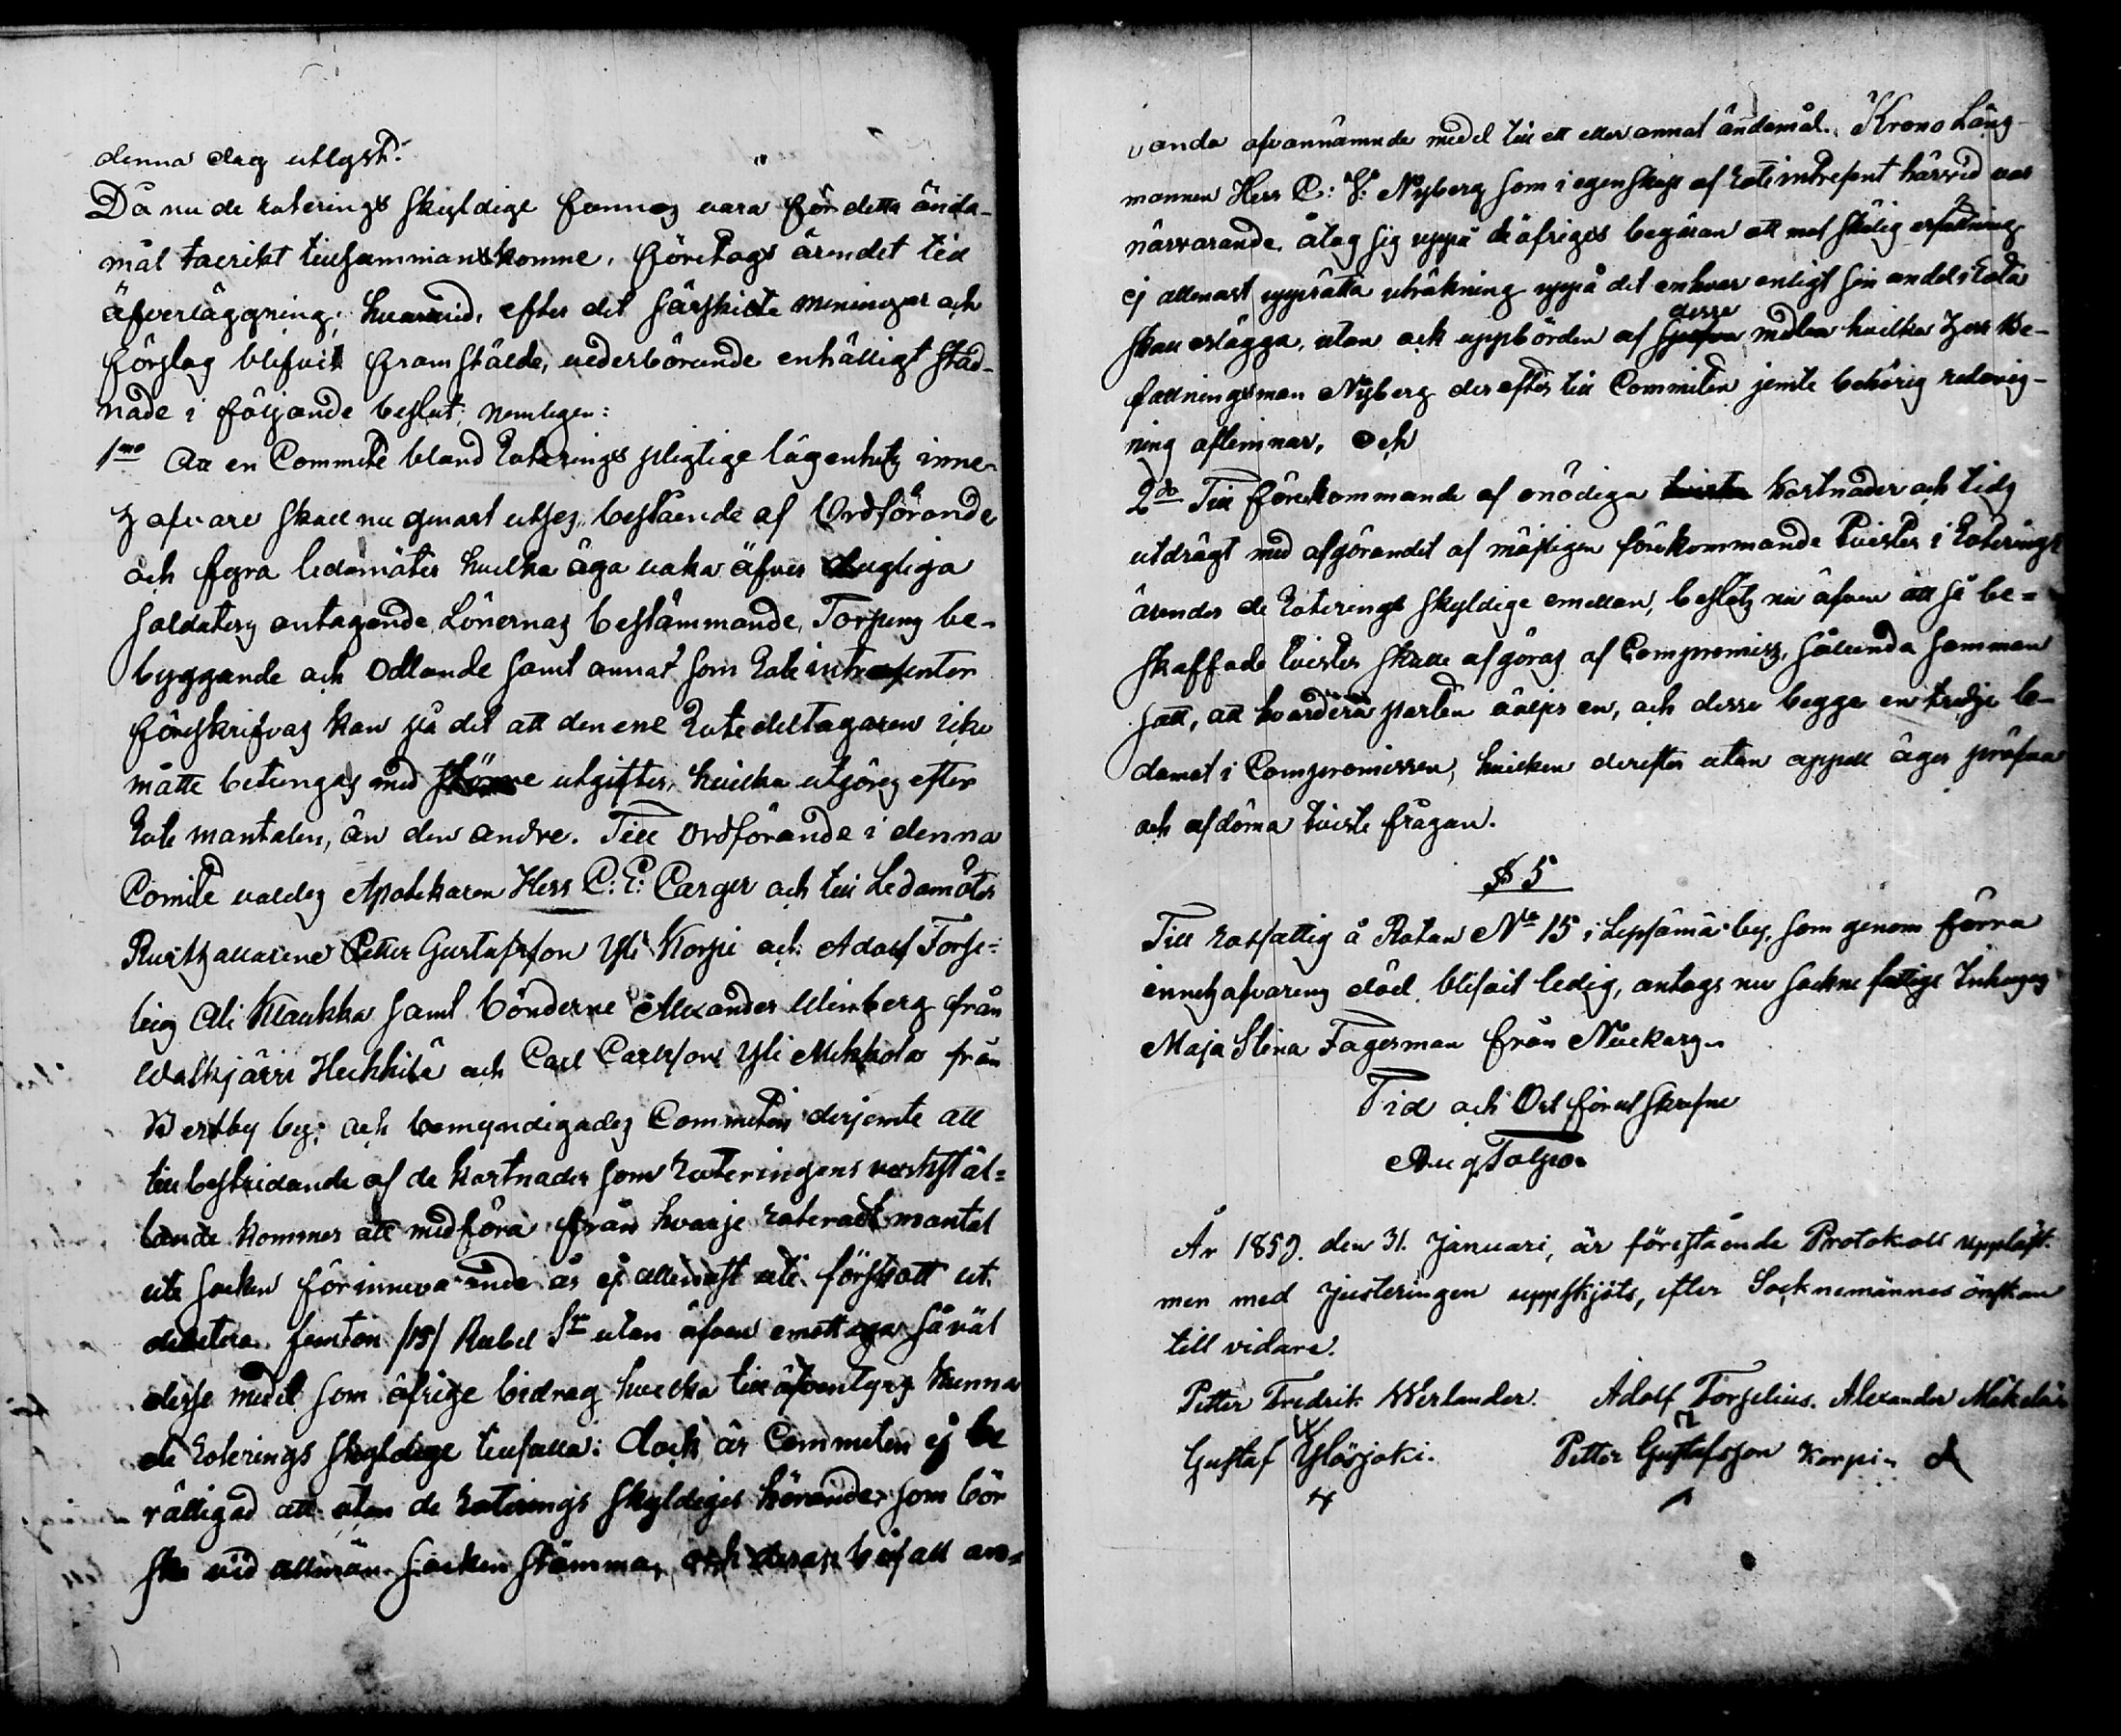 denna dag utlyst.
Då nu de roterings skyldige funnos vara för detta ända-
mål talrikt tillsammanskomne, företogs ärendet till
öfverläggning, hvarvid, efter det särskilte meningar och
förslag blifvit framstälde, vederbörande enhälligt stad-
nade i följande beslut; nemligen:
1mo Att en Commité bland Roterings pligtige lägenhets inne-
hafvare skall nu genast utses, bestående af Ordförande
och fyra ledamöter hvilka äga vaka öfver dugliga
soldaters antagande, Lönernas bestämmande, Torpens be-
byggande och Odlande samt annat som Rote intressenter
föreskrifvas kan på det att den ene Rote deltagaren icke
måtte betungas med större utgifter, hvilka utgöres efter
Rote mantalen, än den andre. Till Ordförande i denna
Comité valdes Apotekaren Herr C: E: Carger och till Ledamöter
Rusthållarene Petter Gustafsson Yli Korpi och Adolf Torse-
lius Ali Klaukka samt bönderne Alexander Weinberg från
Walkjärvi Heikkilä och Carl Carlsson Yli Mikkola från
Bertby by; och bemyndigades Commitén derjemte att
till bestridande af de kostnader som Roteringens verkstäl-
lande kommer att medföra från hvarje roteradt mantal
ute socken för innevarande år ej allenast uti förskott ut
debitera femton /15/ Rubel Sr utan äfven emottaga såväl
desse medel som öfrige bidrag hvilka till äfventyrs kunna
de Roterings skyldige tillfalla: dock är Commiten ej be
rättigad att utan de Roterings skyldiges hörande, som bör
ske vid allmän socken stämma, och deras bifall an-
vända ofvannämnde medel till ett eller annat ändamål. Krono Läns-
mannen Herr C: F: Nyberg som i egenskap af Roteintressent härvid var
närvarande, åtog sig uppå de öfriges begäran att mot skälig ersättning
ej allenast upprätta uträkning uppå det en hvar enligt sin andel i Rota
skall erlägga, utan ock uppbörden af desse medlen hvilka Herr Be-
fallningsman Nyberg derefter till Commitén jemte behörig redovis-
ning aflemnar, Och
2do Till förekommande af onödiga kostnader och tids
utdrägt med afgörandet af möjligen förekommande Tvister i Roterings
ärender de Roterings skyldige emellan, beslöts nu äfven att så be-
skaffade tvister skulle afgöras af Compromiss, sålunda samman
satt, att hvardera parten väljer en, och desse begge en tredje le-
damot i Compromissen, hvilken derefter utan appell äger pröfva
och afdöma tviste frågan.
§ 5
Till rotfattig å Rotan No 15 i Lepsämä by, som genom förra
innehafvarens död blifvit ledig, antogs nu sockne fattige Inhyses
Maja Stina Fagerman från Nuckars.
Tid och Ort förutskrefne
Aug Talpo.
År 1859. den 31. Januari, är förestående Protokoll uppläst.
men med Justeringen uppskjöts, efter Socknemännes önskan
till vidare.
Petter Fredrik Werlander. Adolf Torselius. Alexander Mäkelä
Gustaf Ylösjoki. Petter Gustafsson Korpi.